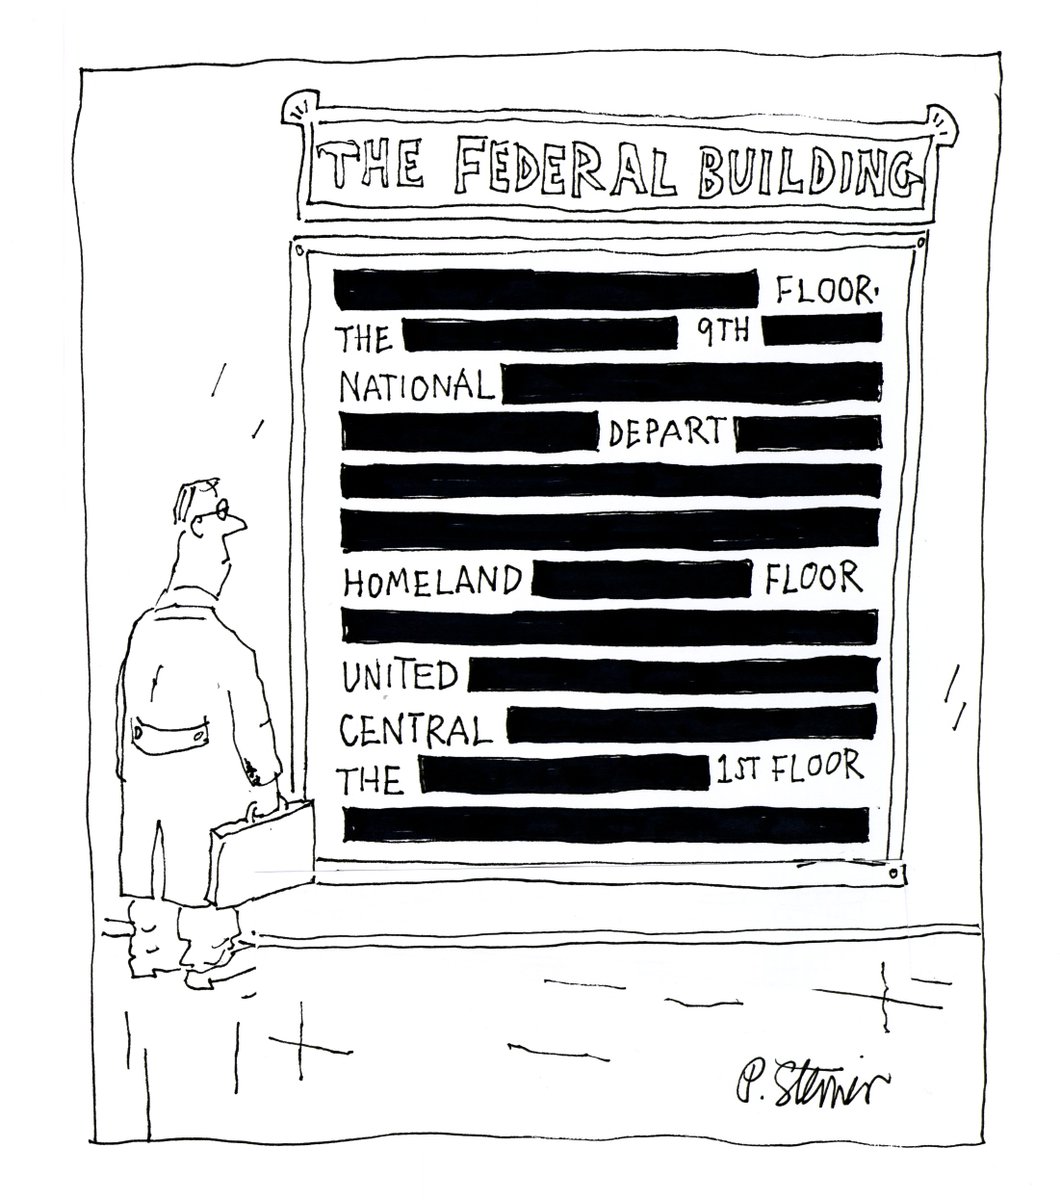 THE FEDERAL BUILDING
FLOOR.
THE 9TH
NATIONAL
DEPART
HOMELAND FLOOR
UNITED
CENTRAL
THE 1ST FLOOR
P. Steiner